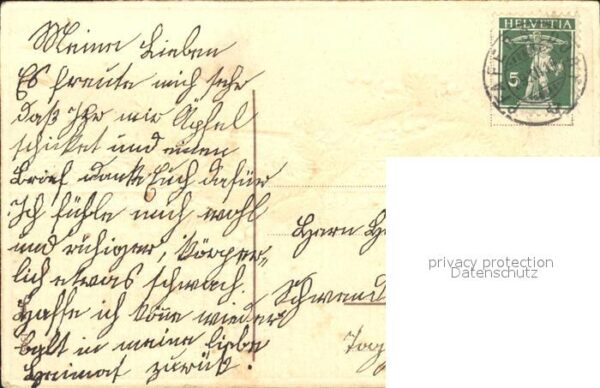 Meine Lieben
Es freute mich sehr
daß Ihr mir Äpfel
schicket und einen
Brief danke Euch dafür
Ich fühle mich wohl
und ruhiger, Körper-
lich etwas schwach.
Hoffe ich könne wieder
balt in meine liebe
Heimat zurük.
HELVETIA
5
Herrn
Schwend
Tog
privacy protection
Datenschutz